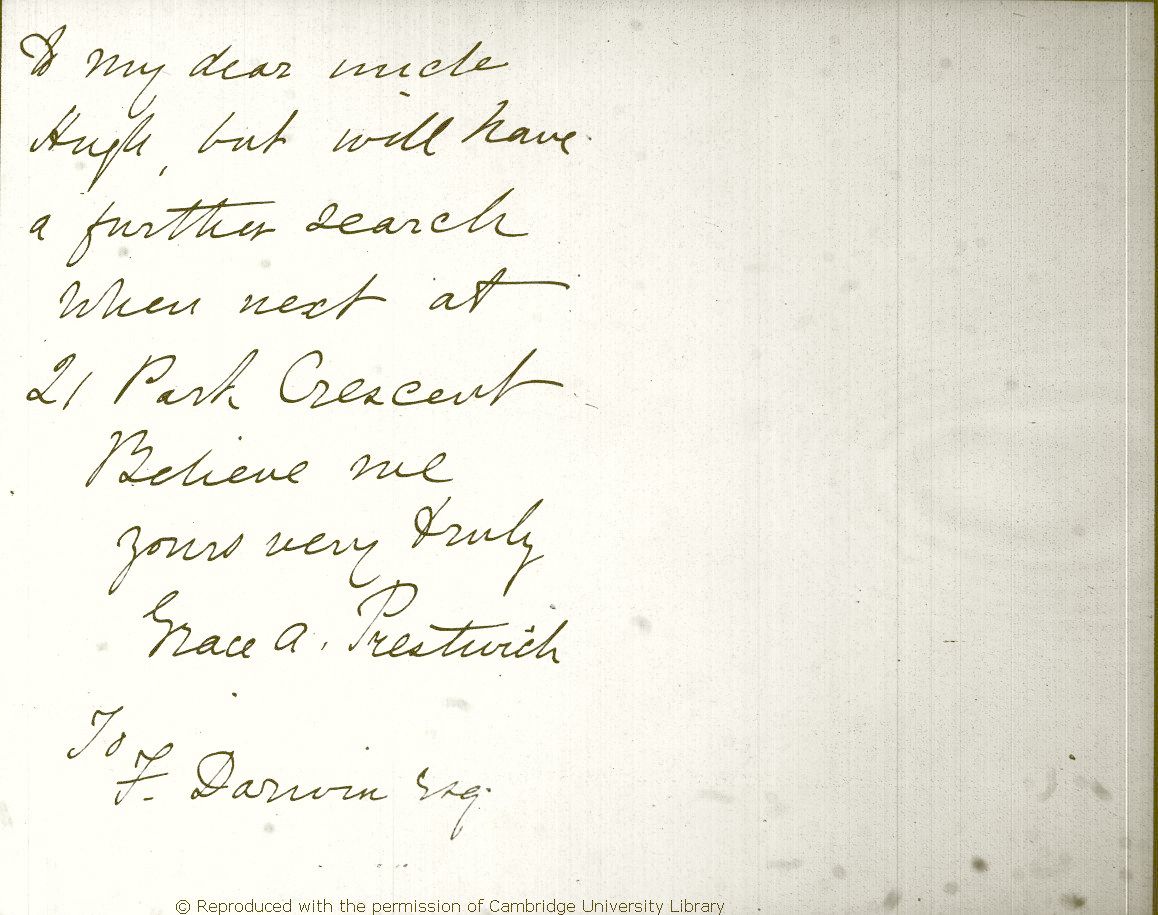 to my dear uncle
Hugh, but will have
a further search
when next at
21 Park Crescent
Believe me
yours very truly
Grace A. Prestwich
To
F. Darwin Esq.
© Reproduced with the permission of Cambridge University Library